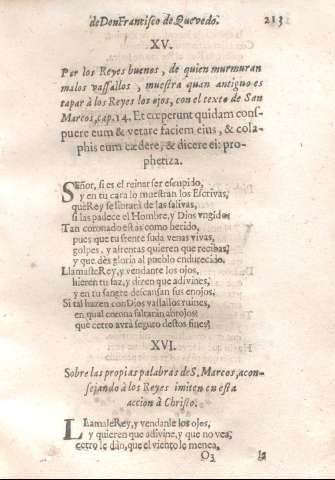 de Don Francisco de Quevedo. 213
XV.
Por los Reyes buenos, de quien murmuran
malos vassallos, muestra quan antiguo es
tapar à los Reyes los ojos, con el texto de San
Marcos, cap. 14. Et cœperunt quidam cons-
puere eum & vetare faciem eius, & cola-
phis eum cædere, & dicere ei: pro-
phetiza.
Señor, si es el reinar ser escupido,
y en tu cara lo muestran los Escrivas,
què Rey se librarà de las salivas,
si las padece el Hombre, y Dios vngido?
Tan coronado estàs como herido,
pues que tu frente suda venas vivas,
golpes, y afrentas quieren que recibas,
y que dès gloria al pueblo endurecido.
Llamaste Rey, y vendante los ojos,
hieren tu faz, y dizen que adivines,
y en tu sangre descansan sus enojos:
Si tal hazen con Dios vassallos ruines,
en qual corona faltaràn abrojos?
què cetro avrà seguro destos fines?
XVI.
Sobre las propias palabras de S. Marcos, acon-
sejando à los Reyes imiten en esta
accion à Christo.
Llamale Rey, y vendanle los ojos,
y quieren que adivine, y que no vea;
cetro le dàn, que el viento le menea,
O3 la